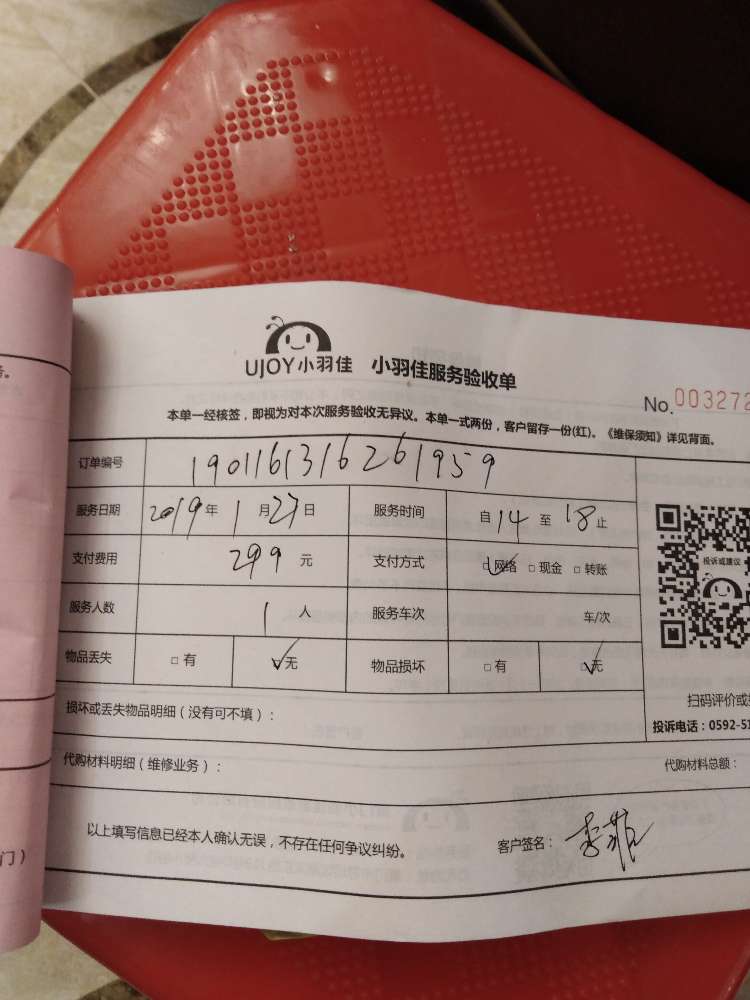 UJOY小羽佳 小羽佳服务验收单
No. 003272
本单一经核签，即视为对本次服务验收无异议。本单一式两份，客户留存一份(红)。《维保须知》详见背面。
订单编号 1901161316261959
服务日期 2019年1月27日 服务时间 自14至18止
支付费用 299元 支付方式 ☑网络 □现金 □转账
投诉或建议
服务人数 1人 服务车次 车/次
物品丢失 □有 ☑无 物品损坏 □有 ☑无
扫码评价或
损坏或丢失物品明细（没有可不填）：
投诉电话：0592-51
代购材料明细（维修业务）： 代购材料总额：
以上填写信息已经本人确认无误，不存在任何争议纠纷。 客户签名：
门）